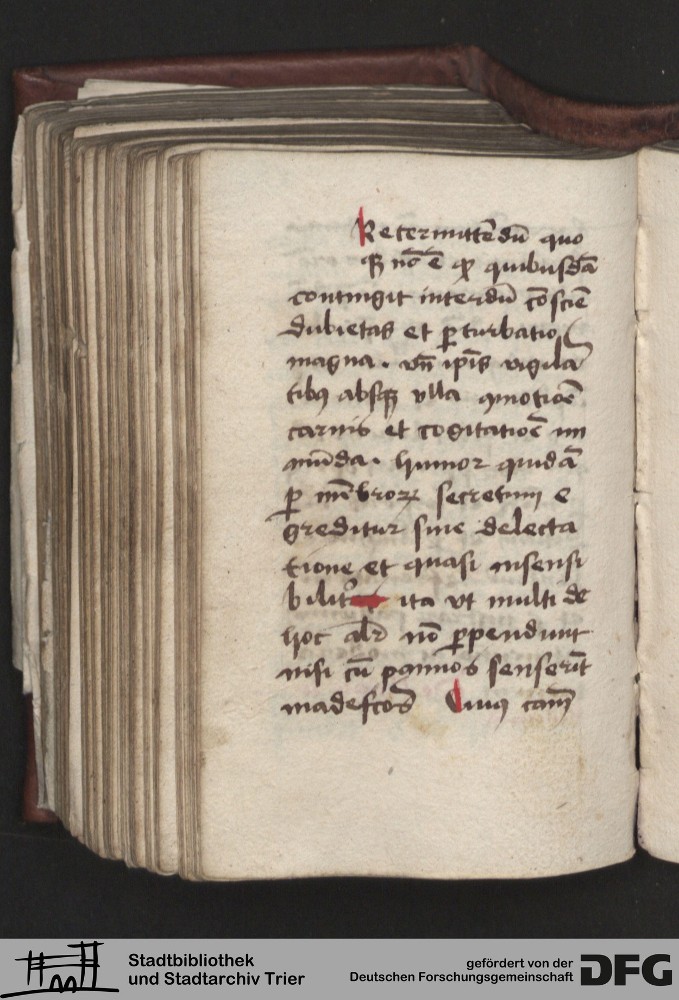 Retermittēdū quo
qȝ nō ē qͩ quibusdā
contingit interdū cōsciē
dubietas et ꝑturbatio
magna. vn̄ ip̄is vigilā
tibꝰ absqȝ vlla ꝯmotiōe
carnis et cogitatiōe im
mūda. humor quidā
ꝑ mēbroꝝ secretum e
greditur sine delecta
tione et quasi insensi
bilitᷣ ita vt multi de
hoc alr̄ nō ꝑpendunt
nisi cū pannos senserīt
madefcōs Cuius cām
Stadtbibliothek
und Stadtarchiv Trier
gefördert von der
Deutschen Forschungsgemeinschaft
DFG